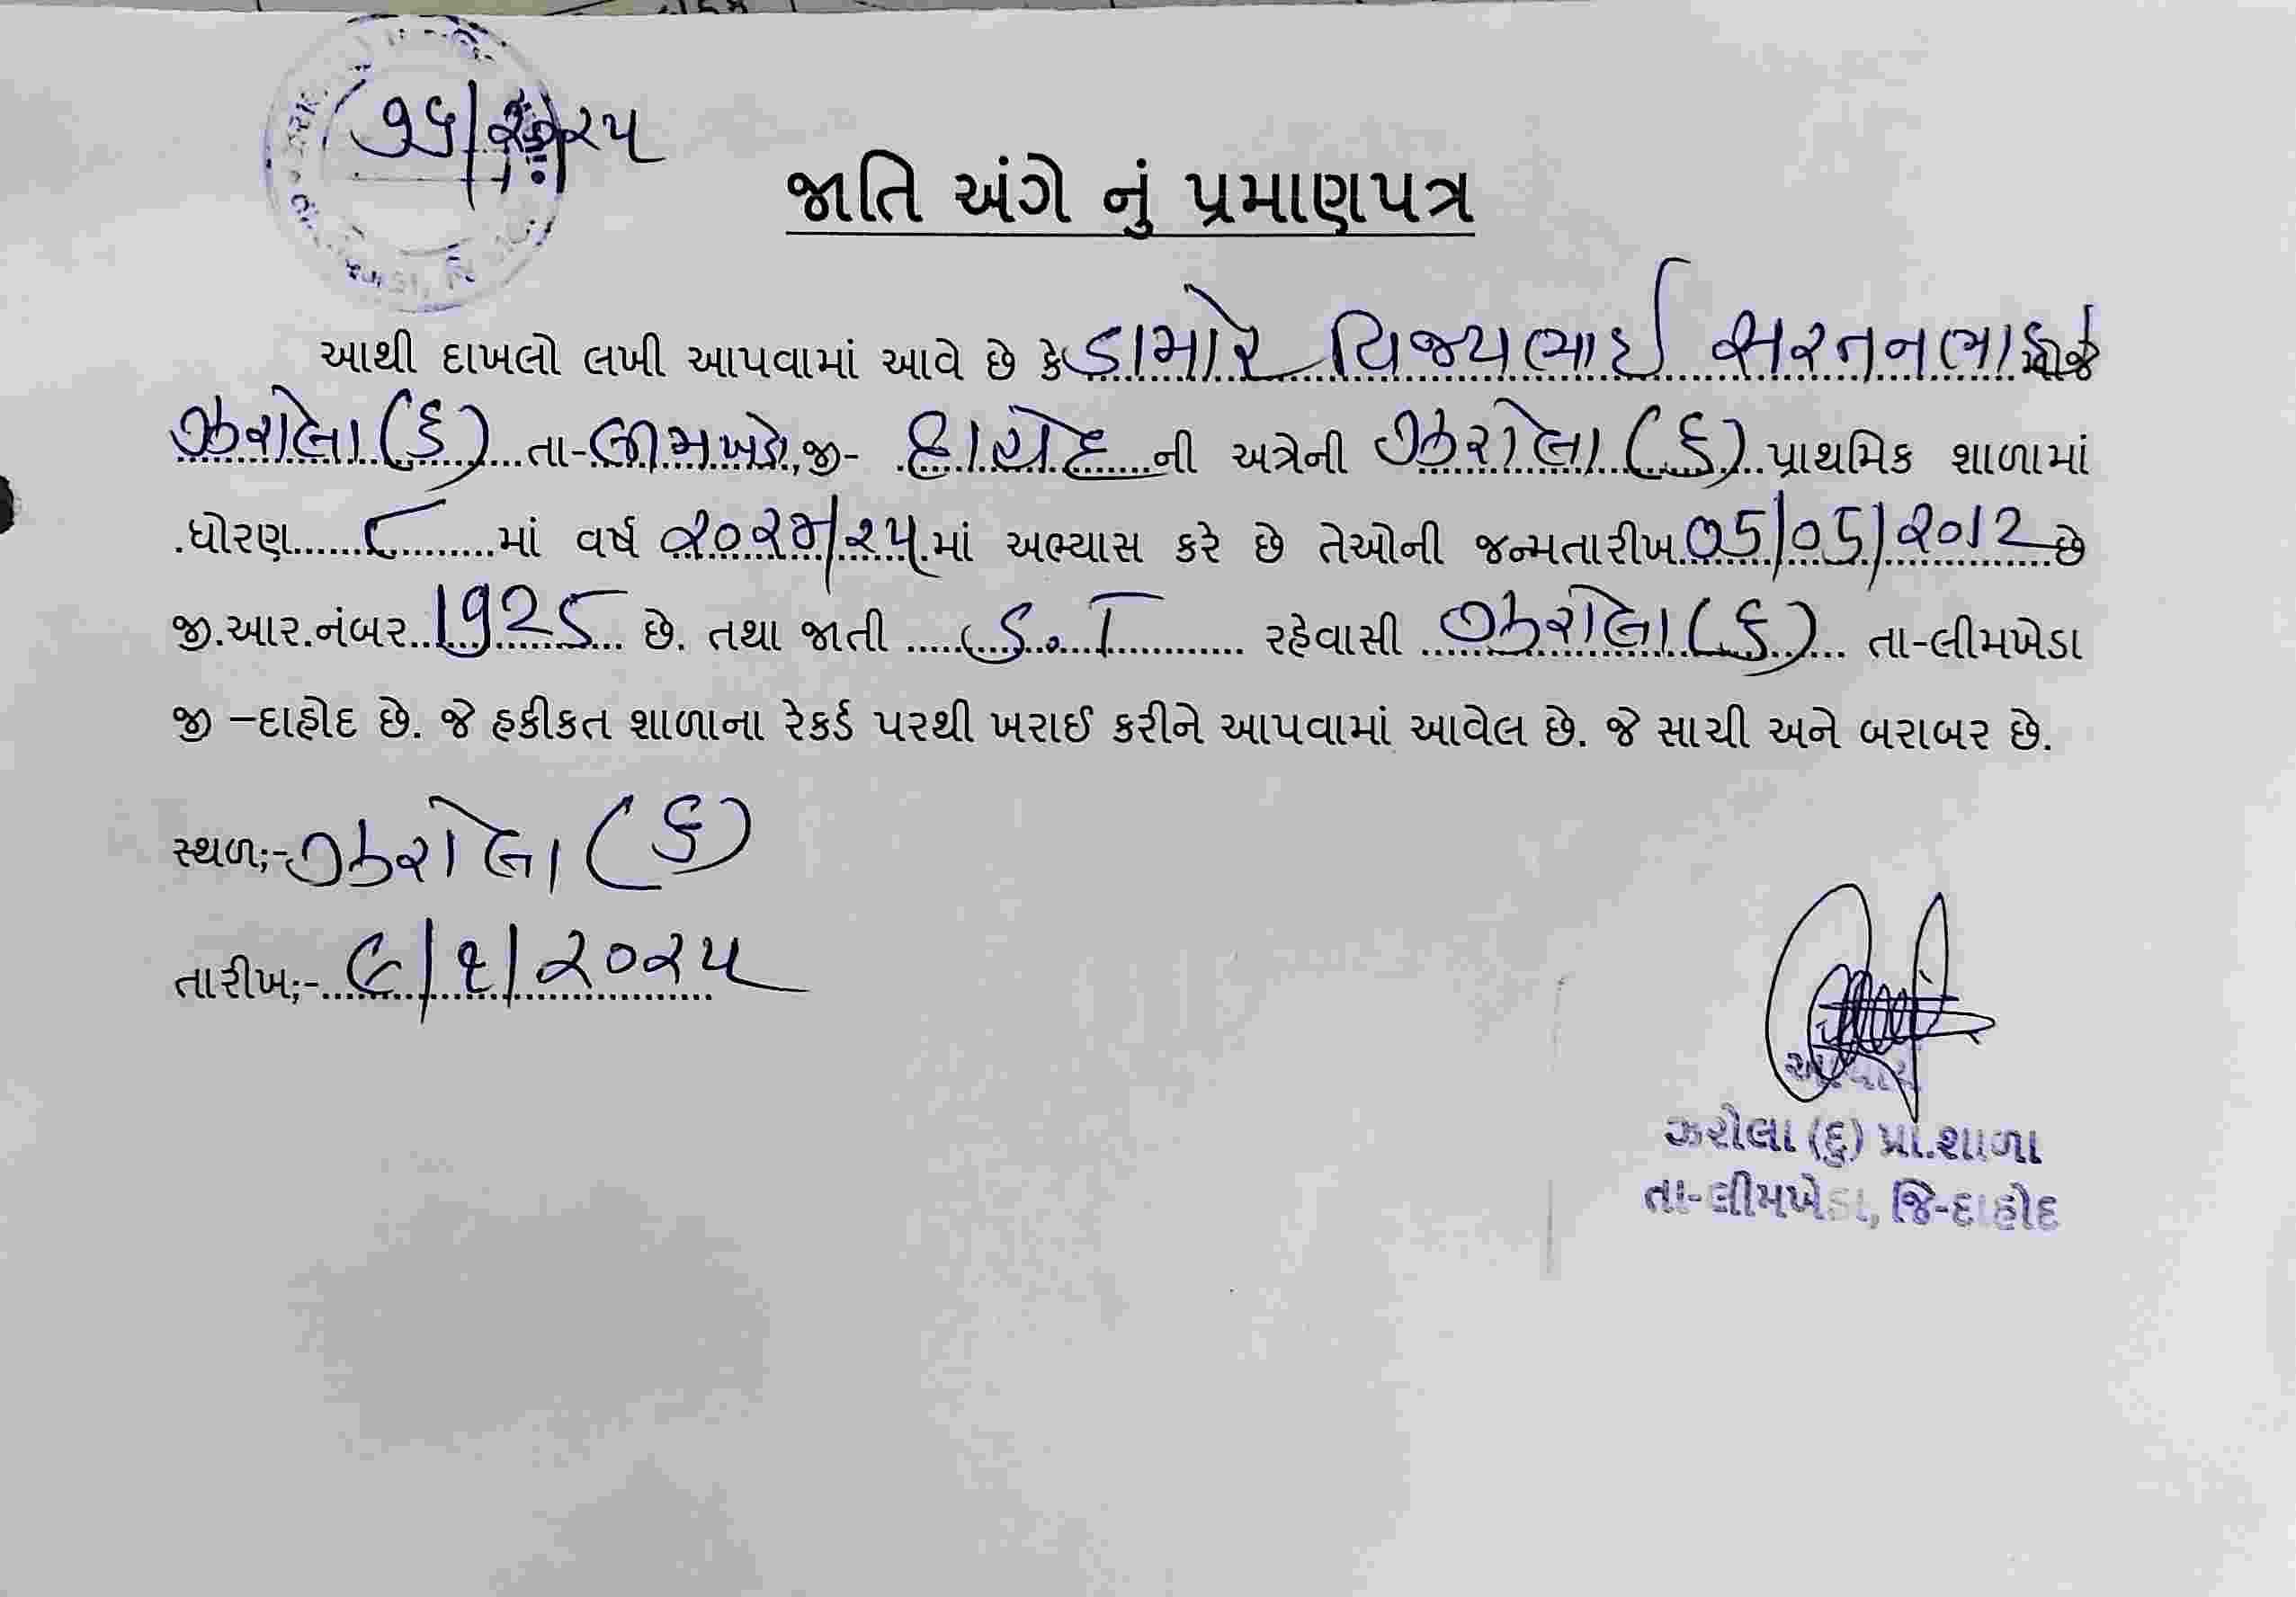 જાતિ અંગે નું પ્રમાણપત્ર
આથી દાખલો લખી આપવામાં આવે છે કે ડામોર વિજયભાઈ સરતનભાઈ
ઝરોલા (દુ) તા-લીમખેડા,જી- દાહોદ ની અત્રેની ઝરોલા (દુ) પ્રાથમિક શાળામાં
.ધોરણ......૮.........માં વર્ષ ૨૦૨૪/૨૫.માં અભ્યાસ કરે છે તેઓની જન્મતારીખ 05/05/2012 છે
જી.આર.નંબર..1925 છે. તથા જાતી ..... S.T ......... રહેવાસી ઝરોલા (દુ)... તા-લીમખેડા
જી –દાહોદ છે. જે હકીકત શાળાના રેકર્ડ પરથી ખરાઈ કરીને આપવામાં આવેલ છે. જે સાચી અને બરાબર છે.
સ્થળ;- ઝરોલા (દુ)
તારીખ;- ૯/૧/૨૦૨૫
આચાર્ય
ઝરોલા (દુ) પ્રા.શાળા
તા-લીમખેડા, જિ-દાહોદ